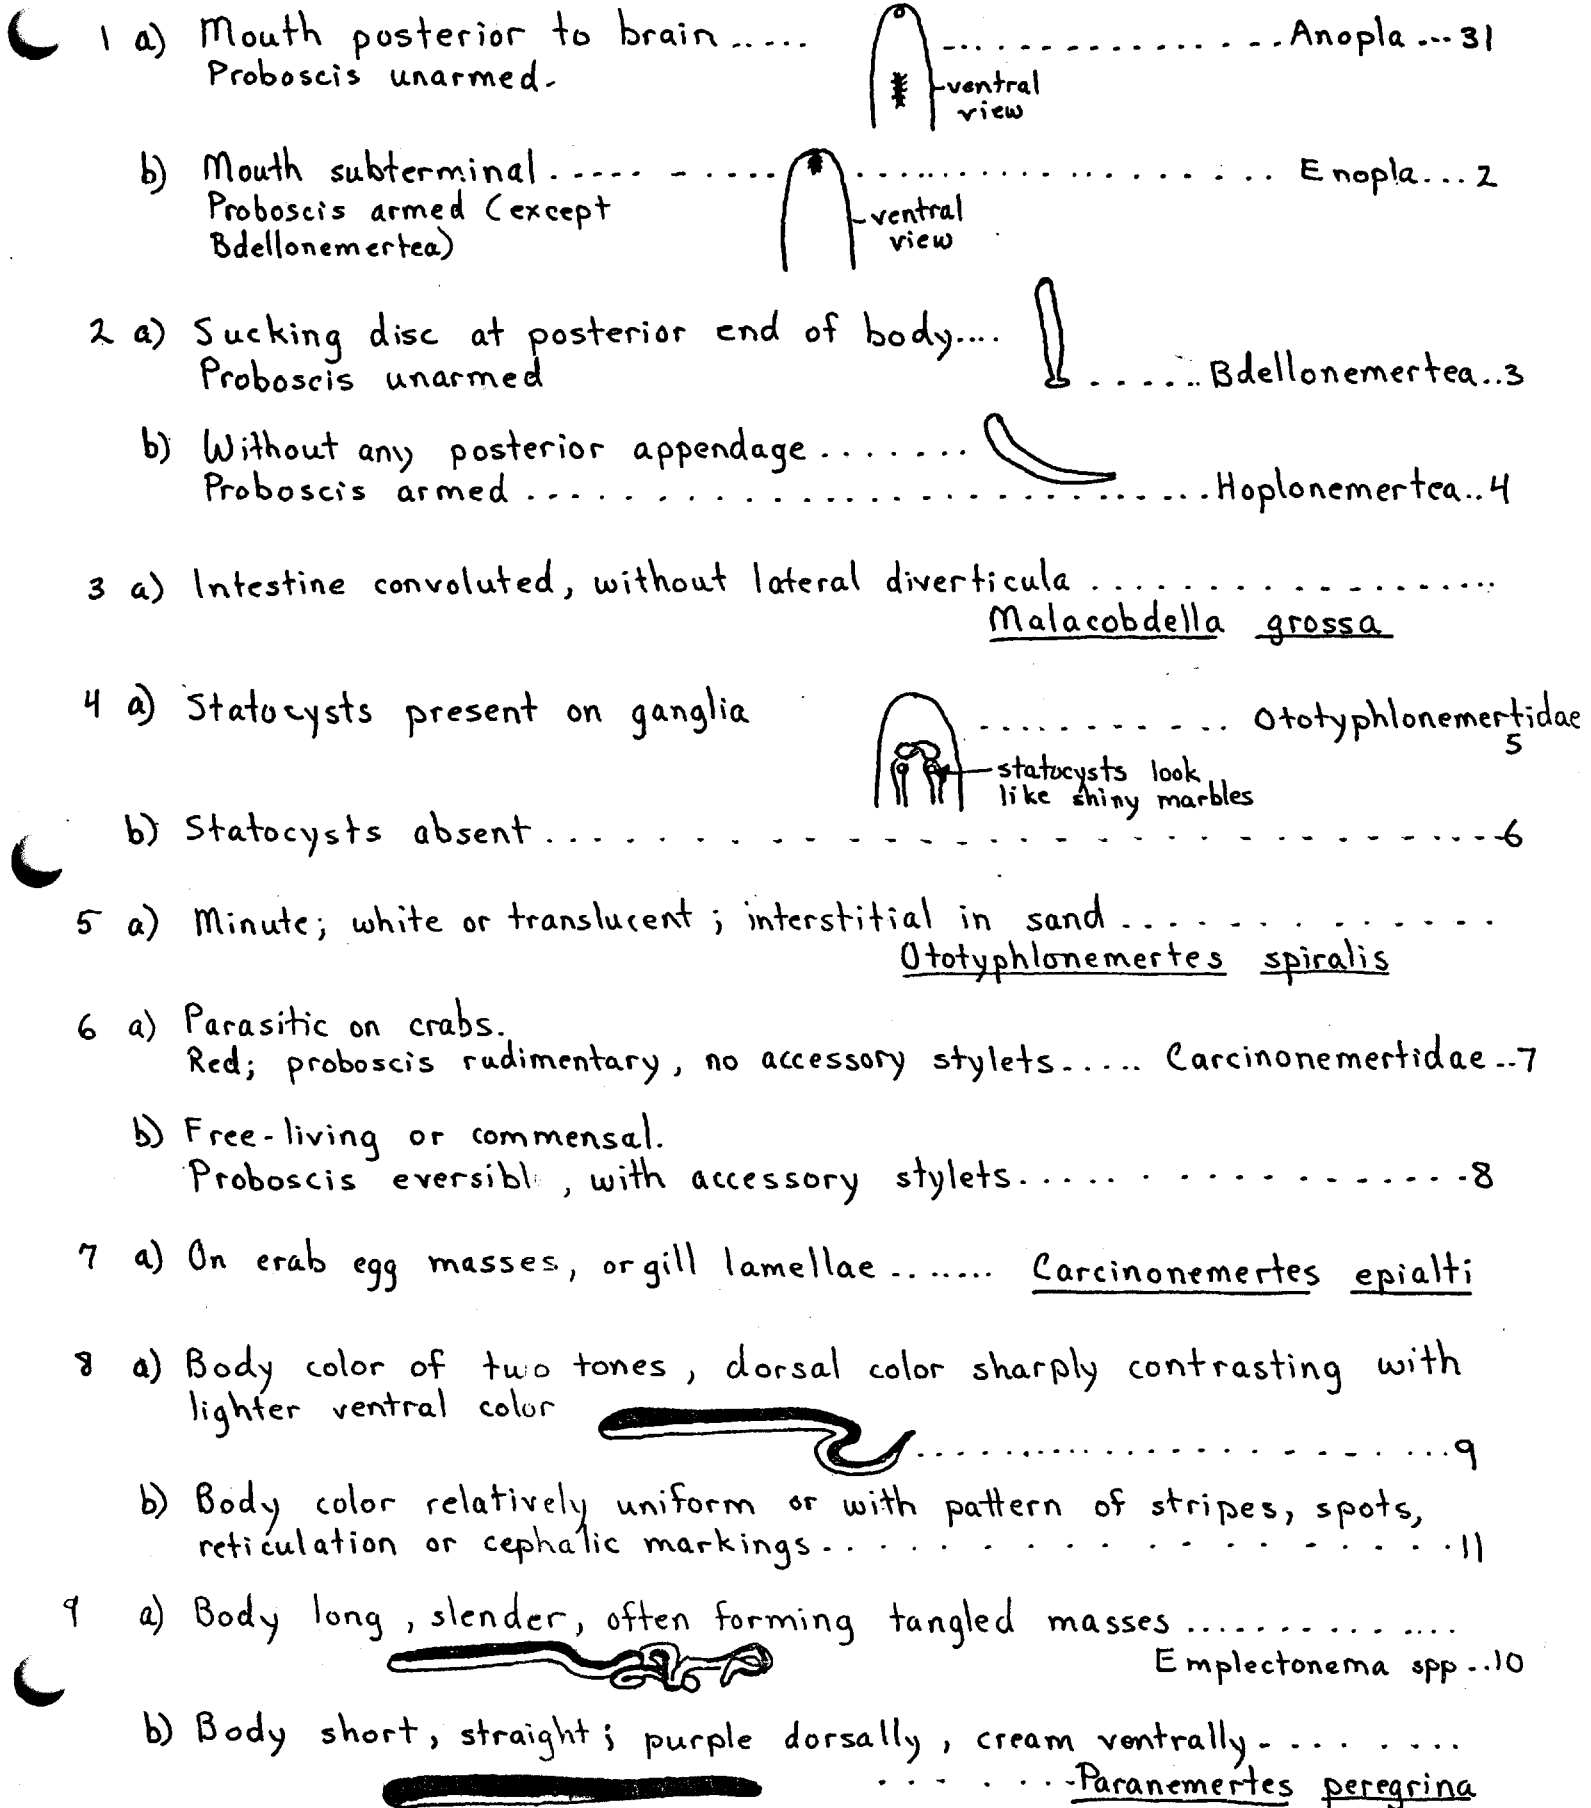 1 a) Mouth posterior to brain ..... .............. Anopla ... 31
Proboscis unarmed.
ventral
view
b) Mouth subterminal .............................. Enopla...2
Proboscis armed (except
Bdellonemertea)
ventral
view
2 a) Sucking disc at posterior end of body....
Proboscis unarmed ...... Bdellonemertea..3
b) Without any posterior appendage .......
Proboscis armed ........................ Hoplonemertea..4
3 a) Intestine convoluted, without lateral diverticula ..................
Malacobdella grossa
4 a) Statocysts present on ganglia ........... Ototyphlonemertidae
5
statocysts look
like shiny marbles
b) Statocysts absent ............................ 6
5 a) Minute; white or translucent; interstitial in sand .............
Ototyphlonemertes spiralis
6 a) Parasitic on crabs.
Red; proboscis rudimentary, no accessory stylets..... Carcinonemertidae..7
b) Free-living or commensal.
Proboscis eversibl , with accessory stylets.................. 8
7 a) On erab egg masses, or gill lamellae ....... Carcinonemertes epialti
8 a) Body color of two tones, dorsal color sharply contrasting with
lighter ventral color
......................9
b) Body color relatively uniform or with pattern of stripes, spots,
reticulation or cephalic markings................11
9 a) Body long, slender, often forming tangled masses ..............
Emplectonema spp ..10
b) Body short, straight; purple dorsally, cream ventrally ........
.......Paranemertes peregrina